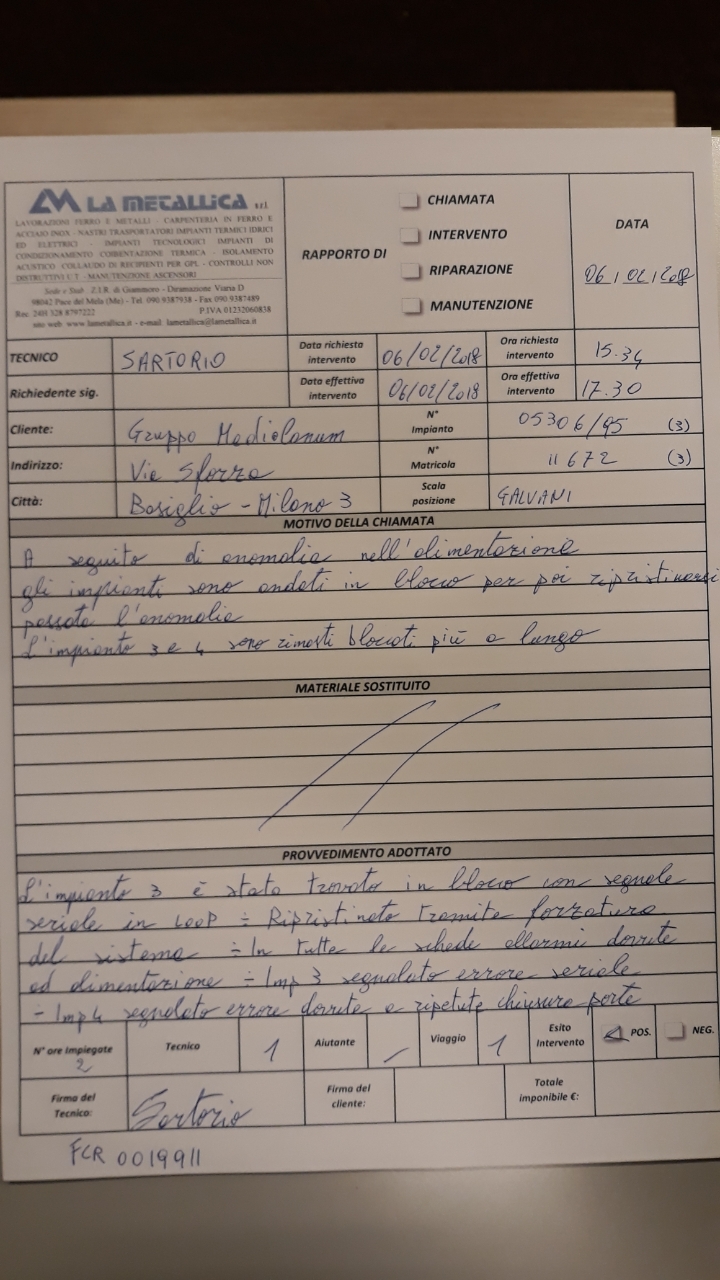 LA METALLICA srl
LAVORAZIONI FERRO E METALLI - CARPENTERIA IN FERRO E
ACCIAIO INOX - NASTRI TRASPORTATORI IMPIANTI TERMICI IDRICI
ED ELETTRICI - IMPIANTI TECNOLOGICI IMPIANTI DI
CONDIZIONAMENTO COIBENTAZIONE TERMICA - ISOLAMENTO
ACUSTICO COLLAUDO DI RECIPIENTI PER GPL - CONTROLLI NON
DISTRUTTIVI C.T - MANUTENZIONE ASCENSORI
Sede e Stab. Z.I.R. di Giammoro - Diramazione Viaria D
98042 Pace del Mela (Me) - Tel. 090.9387938 - Fax 090.9387489
Rea: 2401 328 8797222 P.IVA 01232060838
sito web: www.lametallica.it - e-mail: lametallica@lametallica.it
RAPPORTO DI
CHIAMATA
INTERVENTO
RIPARAZIONE
MANUTENZIONE
DATA
06/02/2018
TECNICO SARTORIO Data richiesta intervento 06/02/2018 Ora richiesta intervento 15.34
Richiedente sig. Data effettiva intervento 06/02/2018 Ora effettiva intervento 17.30
Cliente: Gruppo Mediolanum N° Impianto 05306/95 (3)
Indirizzo: Via Sforza N° Matricola 11672 (3)
Città: Basiglio - Milano 3 Scala posizione GALVANI
MOTIVO DELLA CHIAMATA
A seguito di anomalia nell'alimentazione
gli impianti sono andati in blocco per poi ripristinarsi
passata l'anomalia
L'impianto 3 e 4 sono rimasti bloccati più a lungo
MATERIALE SOSTITUITO
PROVVEDIMENTO ADOTTATO
L'impianto 3 è stato trovato in blocco con segnale
seriale in LOOP ÷ Ripristinato tramite forzatura
del sistema ÷ In tutte le schede allarmi dovute
ad alimentazione ÷ Imp 3 segnalato errore seriale
- Imp 4 segnalato errore dovute a ripetute chiusure porte
N° ore impiegate 2 Tecnico 1 Aiutante / Viaggio 1 Esito Intervento POS. NEG.
Firma del Tecnico: Sartorio Firma del cliente: Totale imponibile €:
FCR 0019911